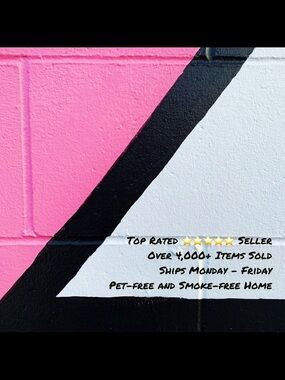 Top Rated ⭐⭐⭐⭐⭐ Seller
Over 4,000+ Items Sold
Ships Monday - Friday
Pet-free and Smoke-free Home